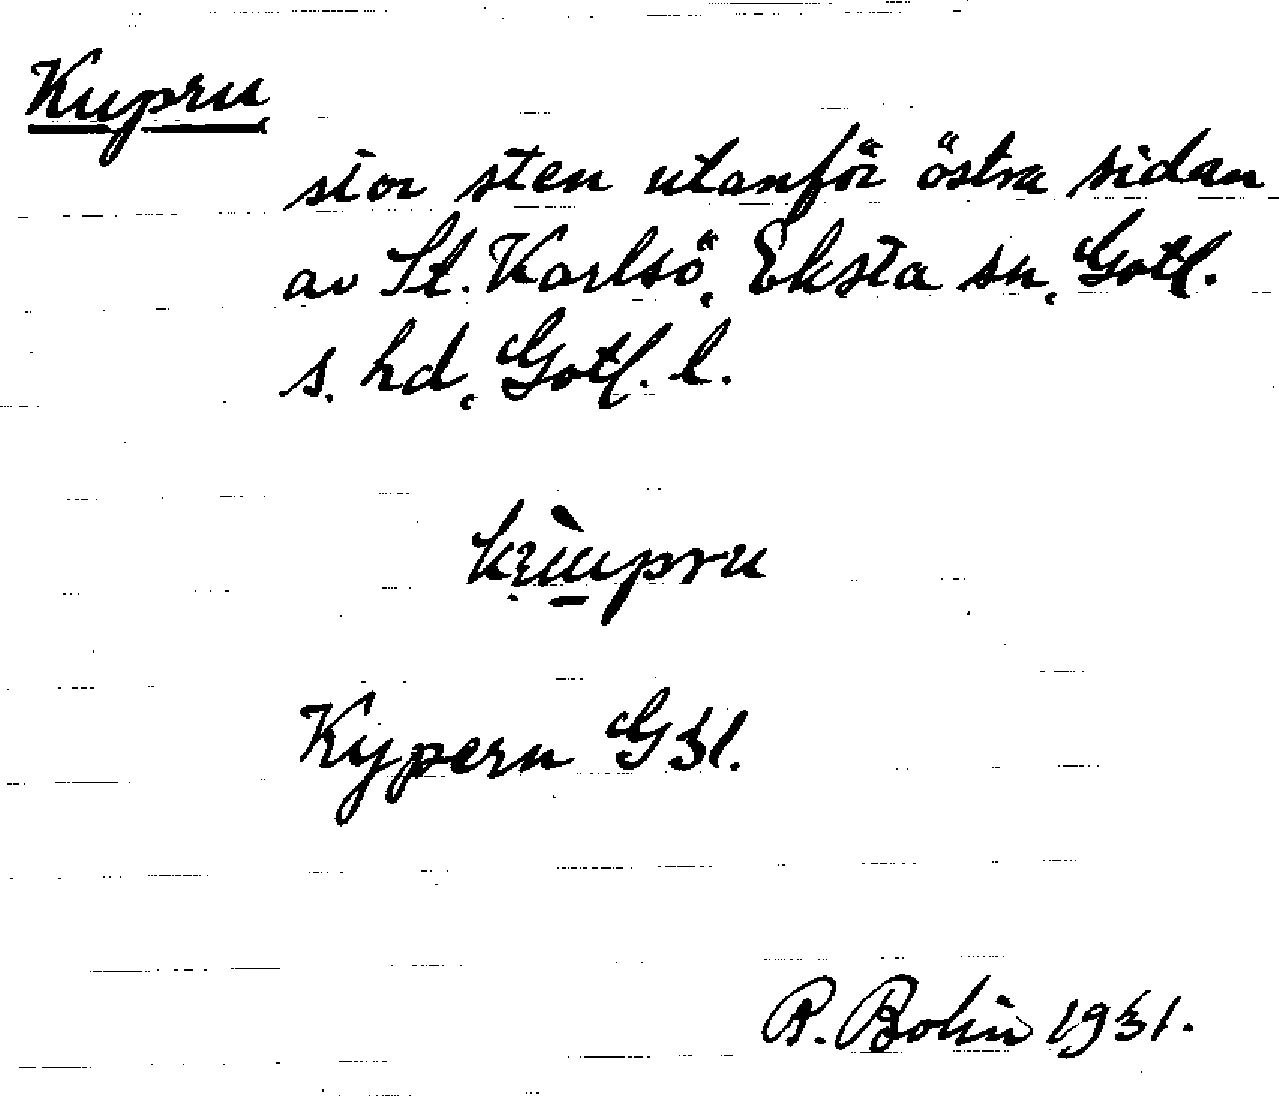 Kupru
stor sten utanför östra sidan
av St. Karlsö, Eksta sn, Gotl.
s. hd, Gotl. l.
Kypern G3l.
R. Bolin 1931.